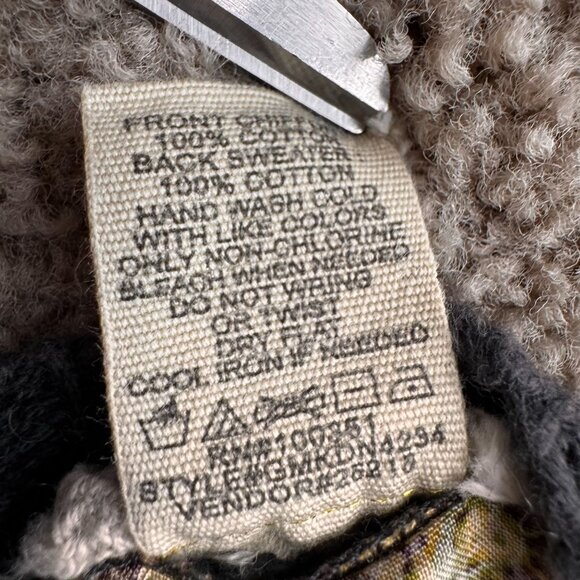 FRONT CHIFFON
100% COTTON
BACK SWEATER
100% COTTON
HAND WASH COLD
WITH LIKE COLORS
ONLY NON-CHLORINE
BLEACH WHEN NEEDED
DO NOT WRING
OR TWIST
DRY FLAT
COOL IRON IF NEEDED
STYLE#GMKDN4234
VENDOR#26215